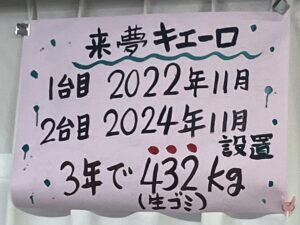 来夢キエーロ
1台目 2022年11月
2台目 2024年11月
設置
3年で432kg
(生ゴミ)